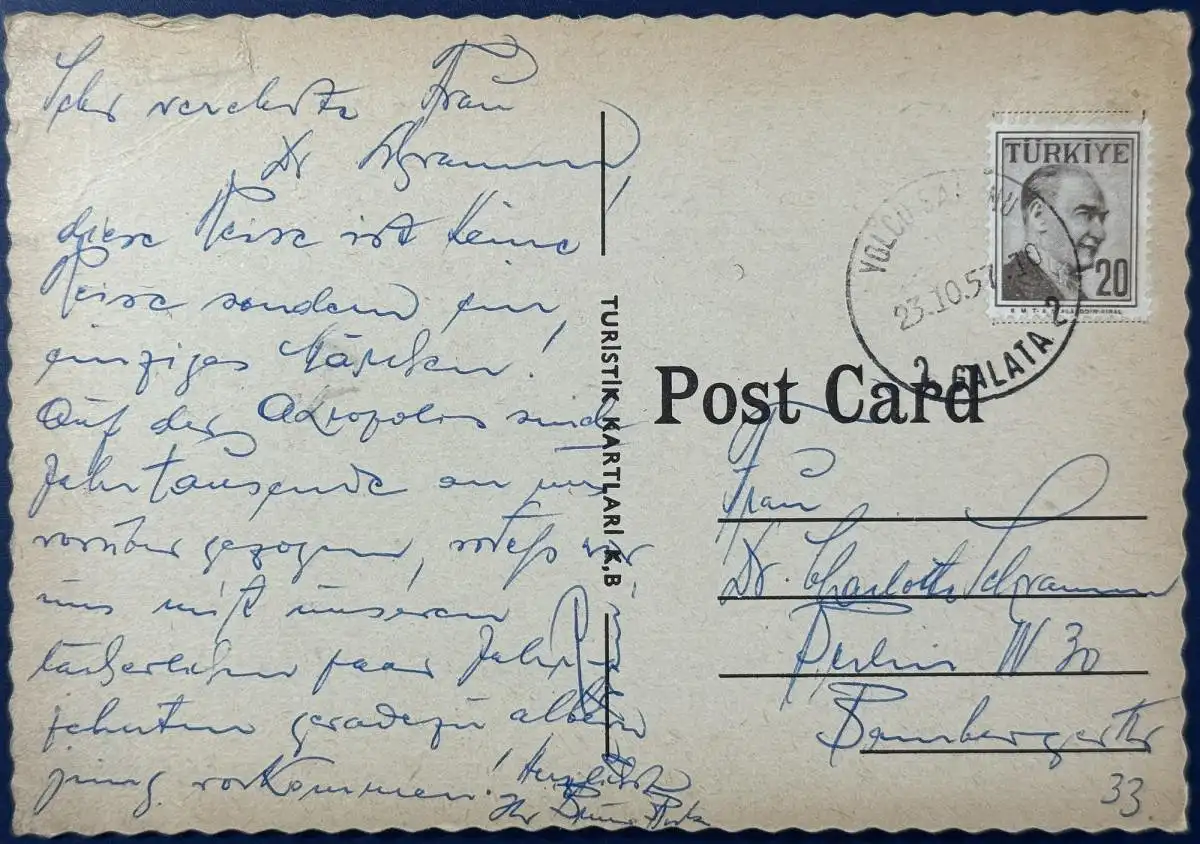 Sehr verehrte Frau
Dr Schramm,
diese Reise ist keine
Reise sondern ein
einziges Märchen!
Auf der Akropolis sind
Jahrtausende an uns
vorüber gezogen, wir
uns mit unseren
lächerlichen paar Jahr-
zehnten geradezu albern
jung vorkommen! Herzlichst
Ihr Bruno
TURİSTİK KARTLARİ K,B
TÜRKİYE
20
YOLCU SALONU
23.10.57.10
2 GALATA 2
Post Card
Frau
Dr. Charlotte Schramm
Berlin W 30
Bambergerstr
33